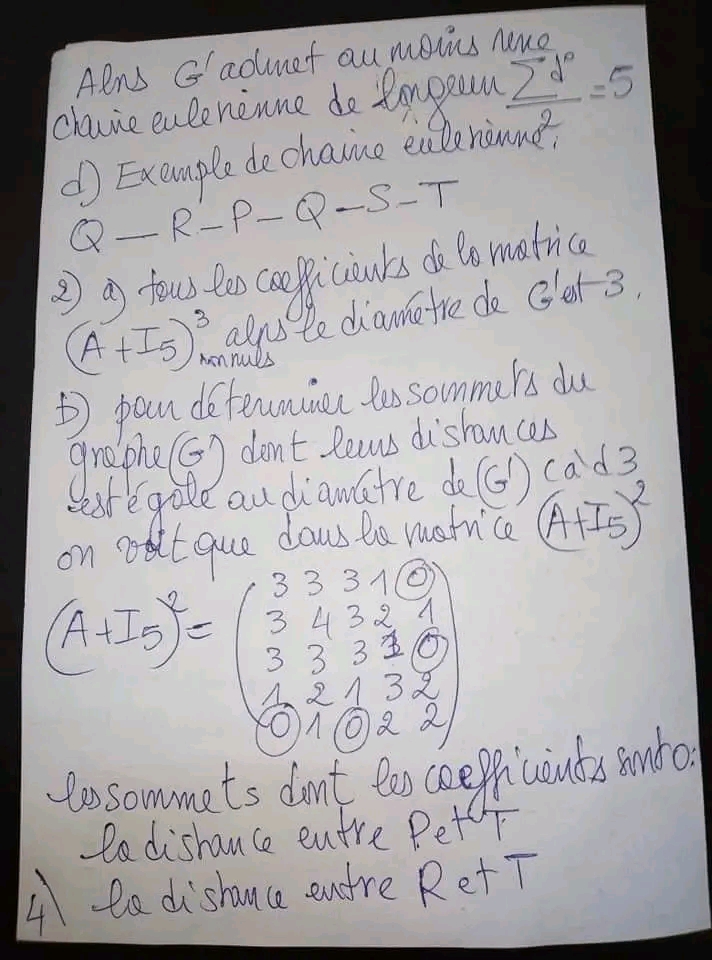 Alors G' admet au moins une
chaine eulerienne de longeur Σd°/2 = 5
d) Exemple de chaine eulerienne.
Q — R – P – Q – S – T
2) a) tous les coefficients de la matrice
(A + I5)³ alors le diamétre de G' est 3.
nonnuls
b) pour déterminer les sommets du
graphe (G') dont leurs distances
est égale au diamétre de (G') càd 3
on voit que dans la matrice (A+I5)²
3 3 3 1 0
(A+I5)² = 3 4 3 2 1
3 3 3 1 0
1 2 1 3 2
0 1 0 2 2
les sommets dont les coefficients sont 0:
la distance entre P et T
4) la distance entre R et T